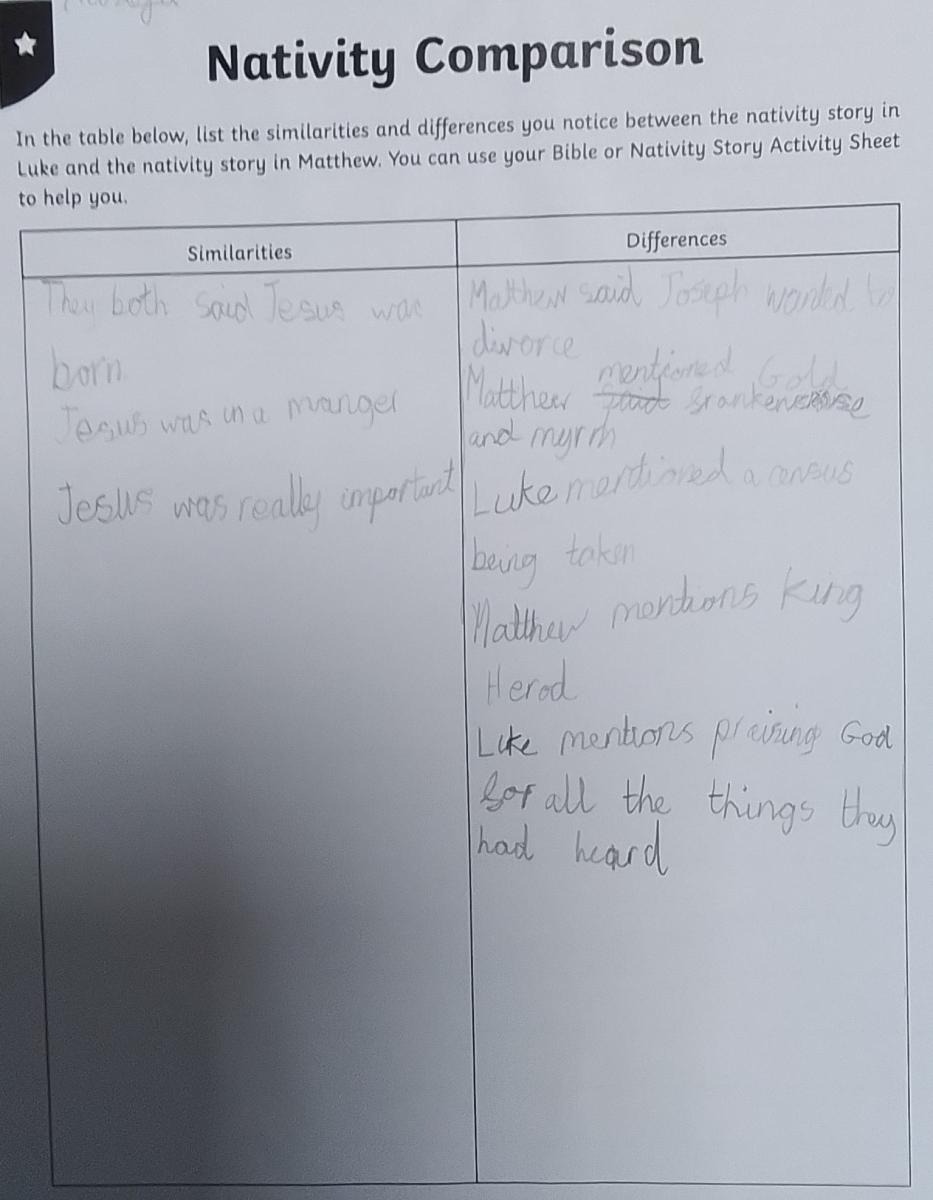 Nativity Comparison
In the table below, list the similarities and differences you notice between the nativity story in
Luke and the nativity story in Matthew. You can use your Bible or Nativity Story Activity Sheet
to help you.
Similarities
They both said Jesus was
born
Jesus was in a manger
Jesus was really important
Differences
Matthew said Joseph wanted to
divorce
mentioned Gold
Matthew said
and myrrh
Luke mentioned a census
being taken
Matthew mentions King
Herod
Luke mentions praising God
for all the things they
had heard